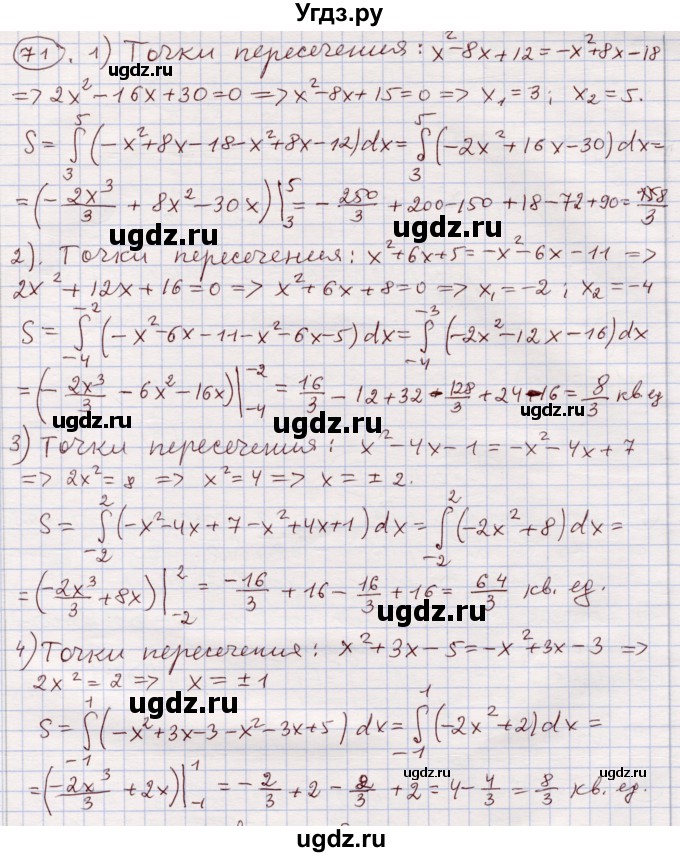 Угдз.ру
71. 1) Точки пересечения: x²-8x+12=-x²+8x-18
=> 2x²-16x+30=0 => x²-8x+15=0 => x₁=3; x₂=5.
S=∫₃⁵(-x²+8x-18-x²+8x-12)dx=∫₃⁵(-2x²+16x-30)dx=
=(-2x³/3+8x²-30x)|₃⁵=-250/3+200-150+18-72+90=
ugdz.ru ugdz.ru
2). Точки пересечения: x²+6x+5=-x²-6x-11 =>
2x²+12x+16=0 => x²+6x+8=0 => x₁=-2; x₂=-4
S=∫₋₄⁻²(-x²-6x-11-x²-6x-5)dx=∫₋₄⁻³(-2x²-12x-16)dx
=(-2x³/3-6x²-16x)|₋₄⁻²=16/3-12+32-128/3+24-16=8/3 кв.ед
ugdz.ru ugdz.ru
3) Точки пересечения: x²-4x-1=-x²-4x+7
=> 2x²=8 => x²=4 => x=±2.
S=∫₋₂²(-x²-4x+7-x²+4x+1)dx=∫₋₂²(-2x²+8)dx=
=(-2x³/3+8x)|₋₂²=-16/3+16-16/3+16=64/3 кв. ед.
ugdz.ru ugdz.ru
4) Точки пересечения: x²+3x-5=-x²+3x-3 =>
2x²=2 => x=±1
ugdz.ru ugdz.ru
S=∫₋₁¹(-x²+3x-3-x²-3x+5)dx=∫₋₁¹(-2x²+2)dx=
=(-2x³/3+2x)|₋₁¹=-2/3+2-2/3+2=4-4/3=8/3 кв. ед.
ugdz.ru ugdz.ru
ugdz.ru